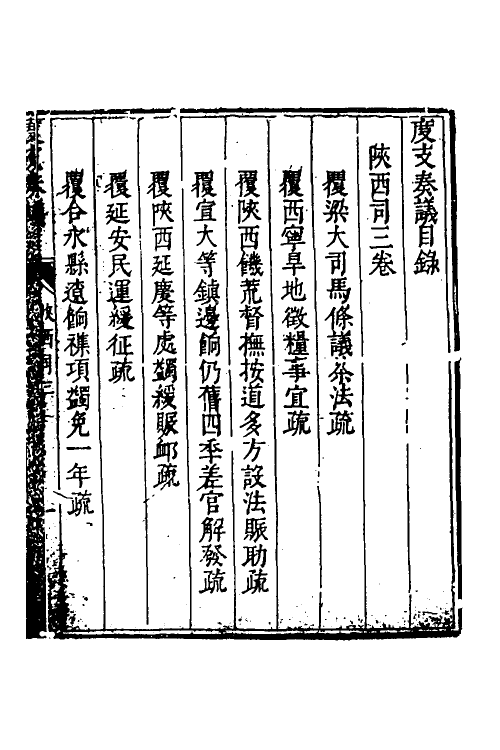 度支奏議目錄
陝西司三卷
覆梁大司馬條議糸法疏
覆西寧旱地徵糧事宜疏
覆陝西饑荒督撫按道多方設法賑助疏
覆宣大等鎮邊餉仍舊四季差官解發疏
覆陝西延慶等處蠲緩賑䘏疏
覆延安民運緩征疏
覆合水縣遼餉襍項蠲免一年疏